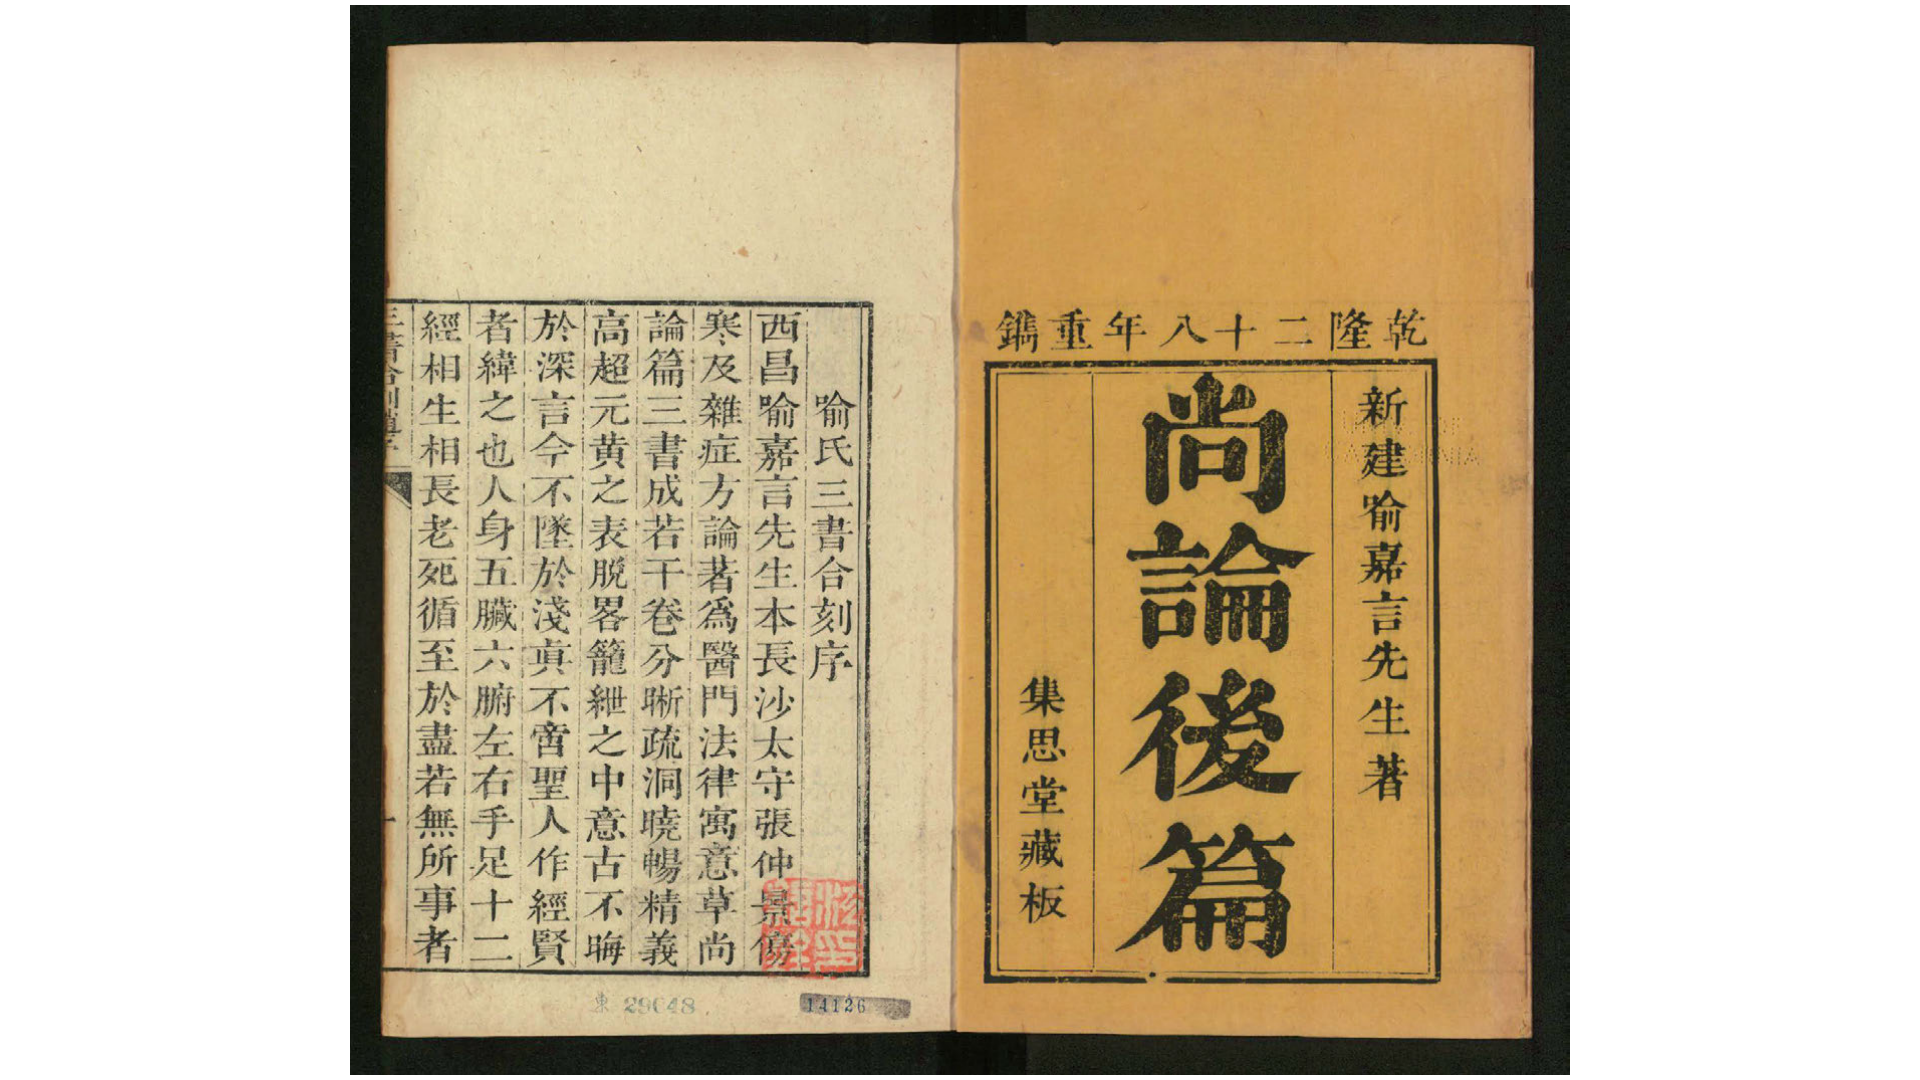 乾隆二十八年重鐫
新建喻嘉言先生著
尚論後篇
集思堂藏板
喻氏三書合刻序
西昌喻嘉言先生本長沙太守張仲景傷
寒及雜症方論著爲醫門法律寓意草尚
論篇三書成若干卷分晰疏洞曉暢精義
高超元黃之表脫畧籠紲之中意古不晦
於深言今不墜於淺眞不啻聖人作經賢
者緯之也人身五臟六腑左右手足十二
經相生相長老死循至於盡若無所事者
東 29048
14126